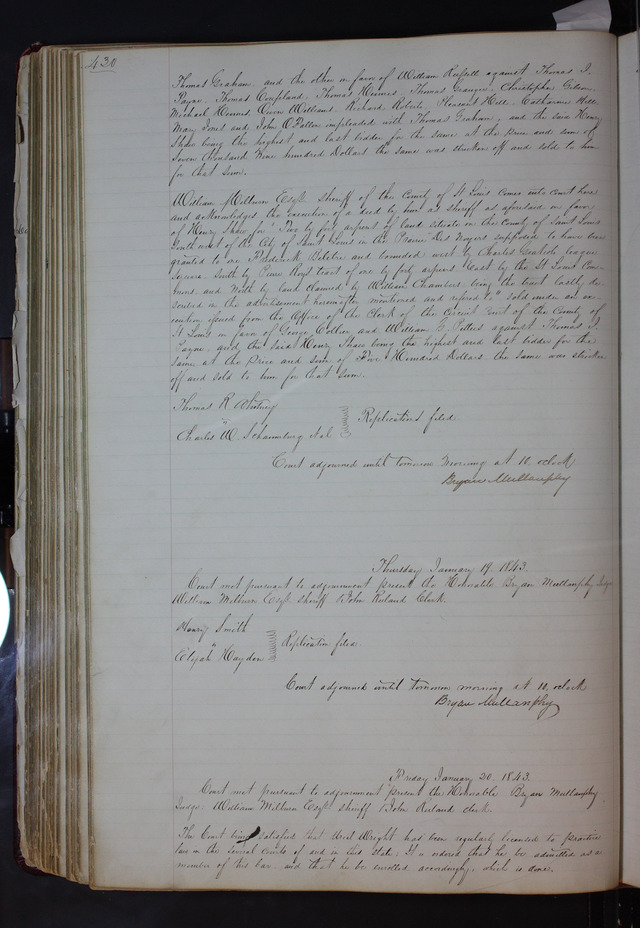 430
Thomas Graham, and the other in favor of William Russell against Thomas J.
Payne, Thomas Copeland, Thomas Haines, Thomas Granger, Christopher Gibson,
Michael Hennes, Owen Williams, Richard Roberts, Pleasant Hill, Catharine Hill,
Mary Jones and John O'Fallon impleaded with Thomas Graham, and the said Henry
Shaw being the highest and last bidder for the same at the price and sum of
Seven thousand Nine hundred Dollars the same was stricken off and sold to him
for that sum.
William Milburn Esqr. Sheriff of the County of St Louis comes into court here
and acknowledges the execution of a deed by him as sheriff as aforesaid in favor
of Henry Shaw for "Two by forty arpens of land situate in the County of Saint Louis
South west of the City of Saint Louis in the Prairie Des Noyers supposed to have been
granted to one Frederick and bounded west by Charles Gratiots league
Square South by Pierre Roys tract of one by forty arpens. East by the St Louis Com-
mons, and North by land claimed by William Chambers, being the tract lastly de-
scribed in the advertisement hereinafter mentioned and refered to" sold under an ex-
ecution issued from the Office of the Clerk of the Circuit Court of the County of
St Louis in favor of George Collier and William G. Pettus against Thomas J.
Payne, and the said Henry Shaw being the highest and last bidder for the
same at the Price and sum of Five Hundred Dollars the same was stricken
off and sold to him for that sum.
Thomas R. Whitney
" Replications filed
Charles W. Schaumburg et al
Court adjourned until tomorrow morning at 10, oclock
Bryan Mullanphy
Thursday January 19. 1843.
Court met pursuant to adjournment present the Honorable Bryan Mullanphy Judge
William Milburn Esqr. Sheriff & John Ruland Clerk.
Henry Smith
" Replication filed.
Elijah Haydon
Court adjourned until tomorrow morning at 10, oclock
Bryan Mullanphy
Friday January 20. 1843.
Court met pursuant to adjournment present the Honorable Bryan Mullanphy
Judge. William Milburn Esqr. sheriff & John Ruland clerk.
The Court being satisfied that Uriel Wright had been regularly licensed to practice
law in the several courts of and in this state; It is ordered that he be admitted as a
member of this bar and that he be enrolled accordingly, which is done.